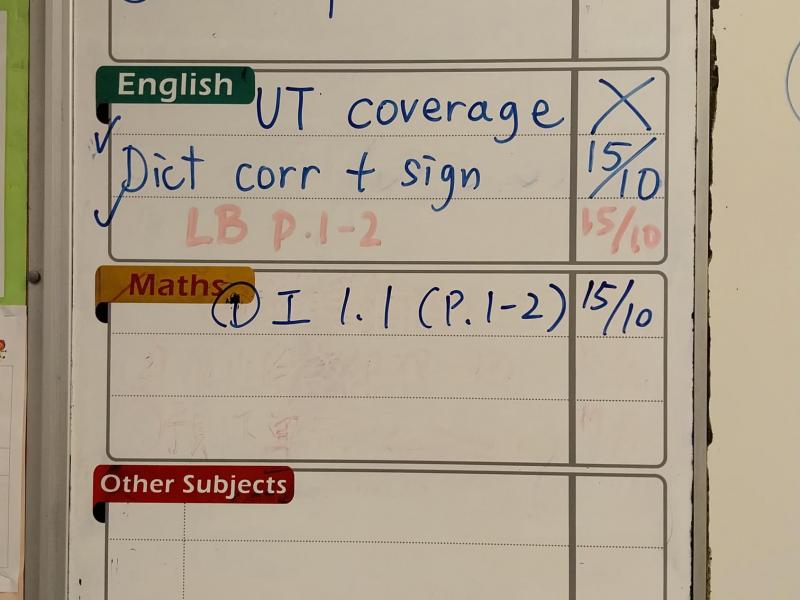 English
UT coverage X
✓ Dict corr + sign 15/10
✓ LB P.1-2 15/10
Maths
① I 1.1 (P.1-2) 15/10
Other Subjects